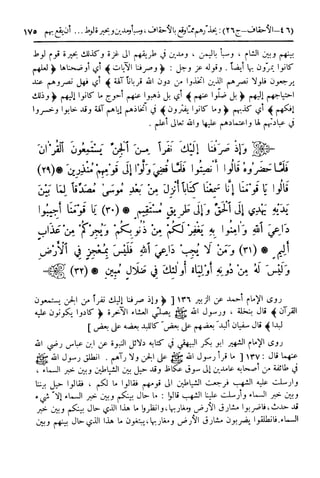 (٤٦-الأحقاف-ج٢٦): يحذرهم مما وقع بالأحقاف، وسبأ ومدين وبحيرة قلوط... أن يقع بهم ١٧٥
بينهم وبين الشام ، وسبأ باليمن ، ومدين في طريقهم الى غزة وكذلك بحيرة قوم لوط
كانوا يمرّون بها أيضاً. وقوله عز وجل : ﴿وصرفنا الآيات﴾ أي أوضحناها ﴿لعلهم
يرجعون فلولا نصرهم الذين اتخذوا من دون الله قرباناً آلهة﴾ أي فهل نصروهم عند
احتياجهم إليهم ﴿بل ضلّوا عنهم﴾ أي بل ذهبوا عنهم أحوج ما كانوا إليهم ﴿وذلك
إفكهم﴾ أي كذبهم ﴿وما كانوا يفترون﴾ في اتخاذهم إياهم آلهة وقد خابوا وخسروا
في عبادتهم لها واعتمادهم عليها والله تعالى أعلم .
وَإِذْ صَرَفْنَا إِلَيْكَ نَفَراً مِنَ الْجِنِّ يَسْتَمِعُونَ الْقُرْآنَ
فَلَمَّا حَضَرُوهُ قَالُوا أَنْصِتُوا فَلَمَّا قُضِيَ وَلَّوْا إِلَى قَوْمِهِمْ مُنْذِرِينَ (٢٩)
قَالُوا يَا قَوْمَنَا إِنَّا سَمِعْنَا كِتَاباً أُنْزِلَ مِنْ بَعْدِ مُوسَى مُصَدِّقاً لِمَا بَيْنَ
يَدَيْهِ يَهْدِي إِلَى الْحَقِّ وَإِلَى طَرِيقٍ مُسْتَقِيمٍ (٣٠) يَا قَوْمَنَا أَجِيبُوا
دَاعِيَ اللهِ وَآمِنُوا بِهِ يَغْفِرْ لَكُمْ مِنْ ذُنُوبِكُمْ وَيُجِرْكُمْ مِنْ عَذَابٍ
أَلِيمٍ (٣١) وَمَنْ لَا يُجِبْ دَاعِيَ اللهِ فَلَيْسَ بِمُعْجِزٍ فِي الْأَرْضِ
وَلَيْسَ لَهُ مِنْ دُونِهِ أَوْلِيَاءُ أُولَئِكَ فِي ضَلَالٍ مُبِينٍ (٣٢)
روى الإمام أحمد عن الزبير ١٣٦ [ ﴿وإذ صرفنا إليك نفراً من الجن يستمعون
القرآن﴾ قال بنخلة ، ورسول الله ﷺ يصلي العشاء الآخرة ﴿كادوا يكونون عليه
لبدا﴾ قال سفيان ألبد بعضهم على بعض كاللبد بعضه على بعض ]
روى الإمام الشهير ابو بكر البيهقي في كتابه دلائل النبوة عن ابن عباس رضي الله
عنهما قال : ١٣٧ [ ما قرأ رسول الله ﷺ على الجن ولا رآهم . انطلق رسول الله ﷺ
في طائفة من أصحابه عامدين إلى سوق عكاظ وقد حيل بين الشياطين وبين خبر السماء ،
وارسلت عليه الشهب فرجعت الشياطين الى قومهم فقالوا ما لكم ، فقالوا حيل بيننا
وبين خبر السماء وأرسلت علينا الشهب قالوا : ما حال بينكم وبين خبر السماء إلا شيء
قد حدث، فاضربوا مشارق الأرض ومغاربها، وانظروا ما هذا الذي حال بينكم وبين خبر
السماء. فانطلقوا يضربون مشارق الأرض ومغاربها، يبتغون ما هذا الذي حال بينهم وبين